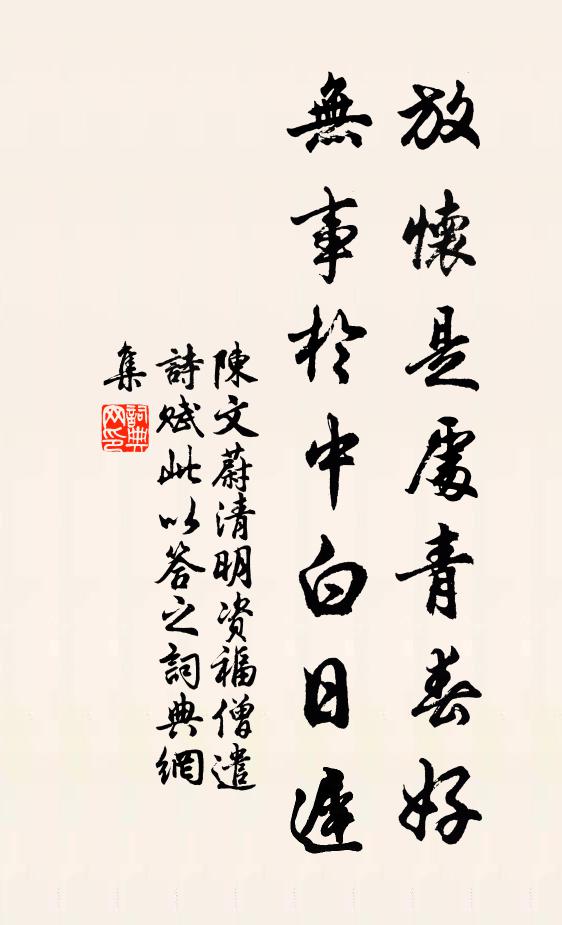 放懷是處青春好
無事於中白日遲
陳文蔚清明资福僧遣
詩赋此以答之詞典網
集
詞典
网印